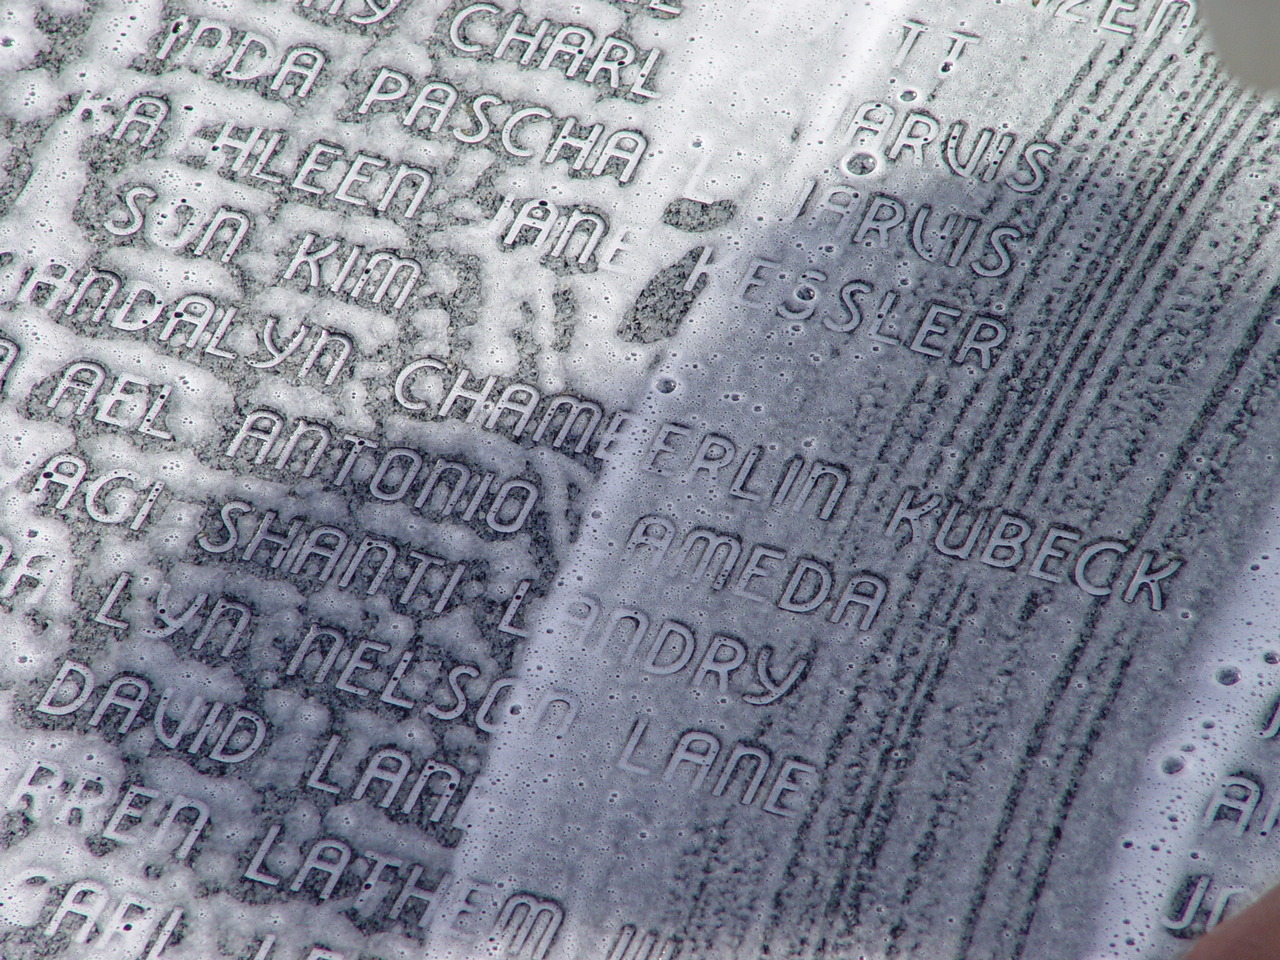 TT
CHARL ARVIS
INDA PASCHAL JARVIS
KATHLEEN JANE KESSLER
SUN KIM
ANDALYN CHAMBERLIN KUBECK
AEL ANTONIO AMEDA
AGI SHANTI LANDRY
LYN NELSON LANE
DAVID LAN
RREN LATHEM